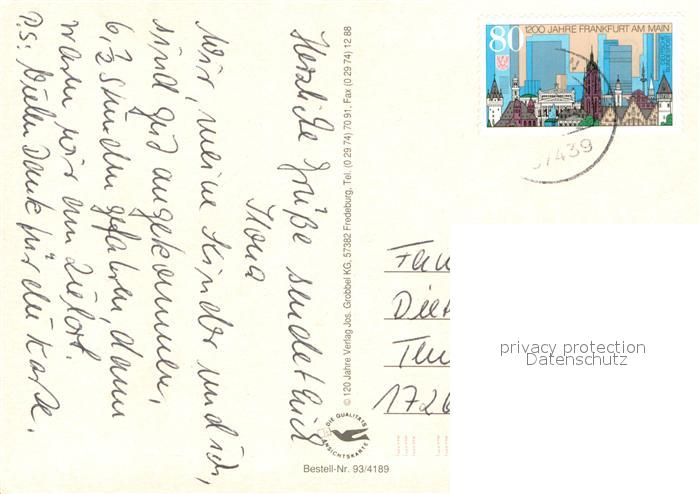 Herzliche Grüße sendet Euch
Ilona
Wir, meine Kinder und ich,
sind gut angekommen,
6,½ Stunden gefahren, dann
waren wir am Zielort.
P.S: Vielen Dank für die Karte.
© 120 Jahre Verlag Jos. Grobbel KG, 57382 Fredeburg, Tel. (0 29 74) 70 91, Fax (0 29 74) 12 88
DIE QUALITÄTS
ANSICHTSKARTE
Bestell-Nr. 93/4189
80
1200 JAHRE FRANKFURT AM MAIN
DEUTSCHE
BUNDESPOST
57439
Fam
Diet
1726
privacy protection
Datenschutz